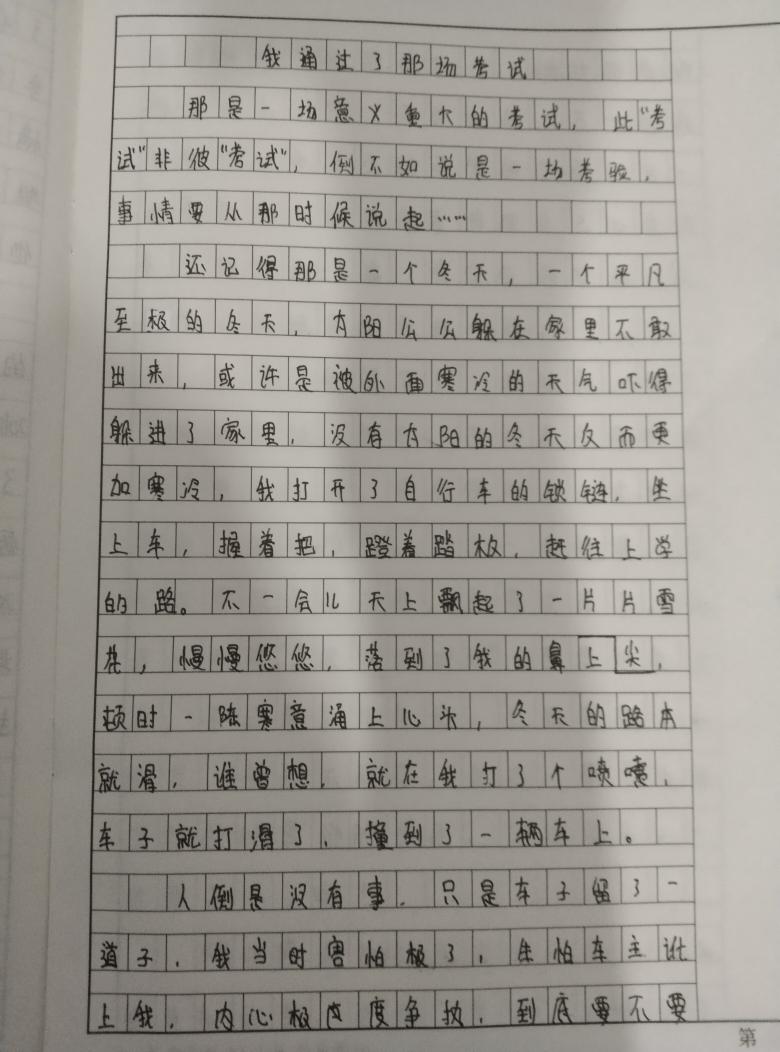 我通过了那场考试
那是一场意义重大的考试，此“考
试”非彼“考试”，倒不如说是一场考验，
事情要从那时候说起……
还记得那是一个冬天，一个平凡
至极的冬天，太阳公公躲在家里不敢
出来，或许是被外面寒冷的天气吓得
躲进了家里，没有太阳的冬天反而更
加寒冷，我打开了自行车的锁链，坐
上车，握着把，蹬着踏板，赶往上学
的路。不一会儿天上飘起了一片片雪
花，慢慢悠悠，落到了我的鼻上尖，
顿时一阵寒意涌上心头，冬天的路本
就滑，谁曾想，就在我打了个喷嚏，
车子就打滑了，撞到了一辆车上。
人倒是没有事，只是车子留了一
道子，我当时害怕极了，生怕车主讹
上我，内心极度争执，到底要不要
第